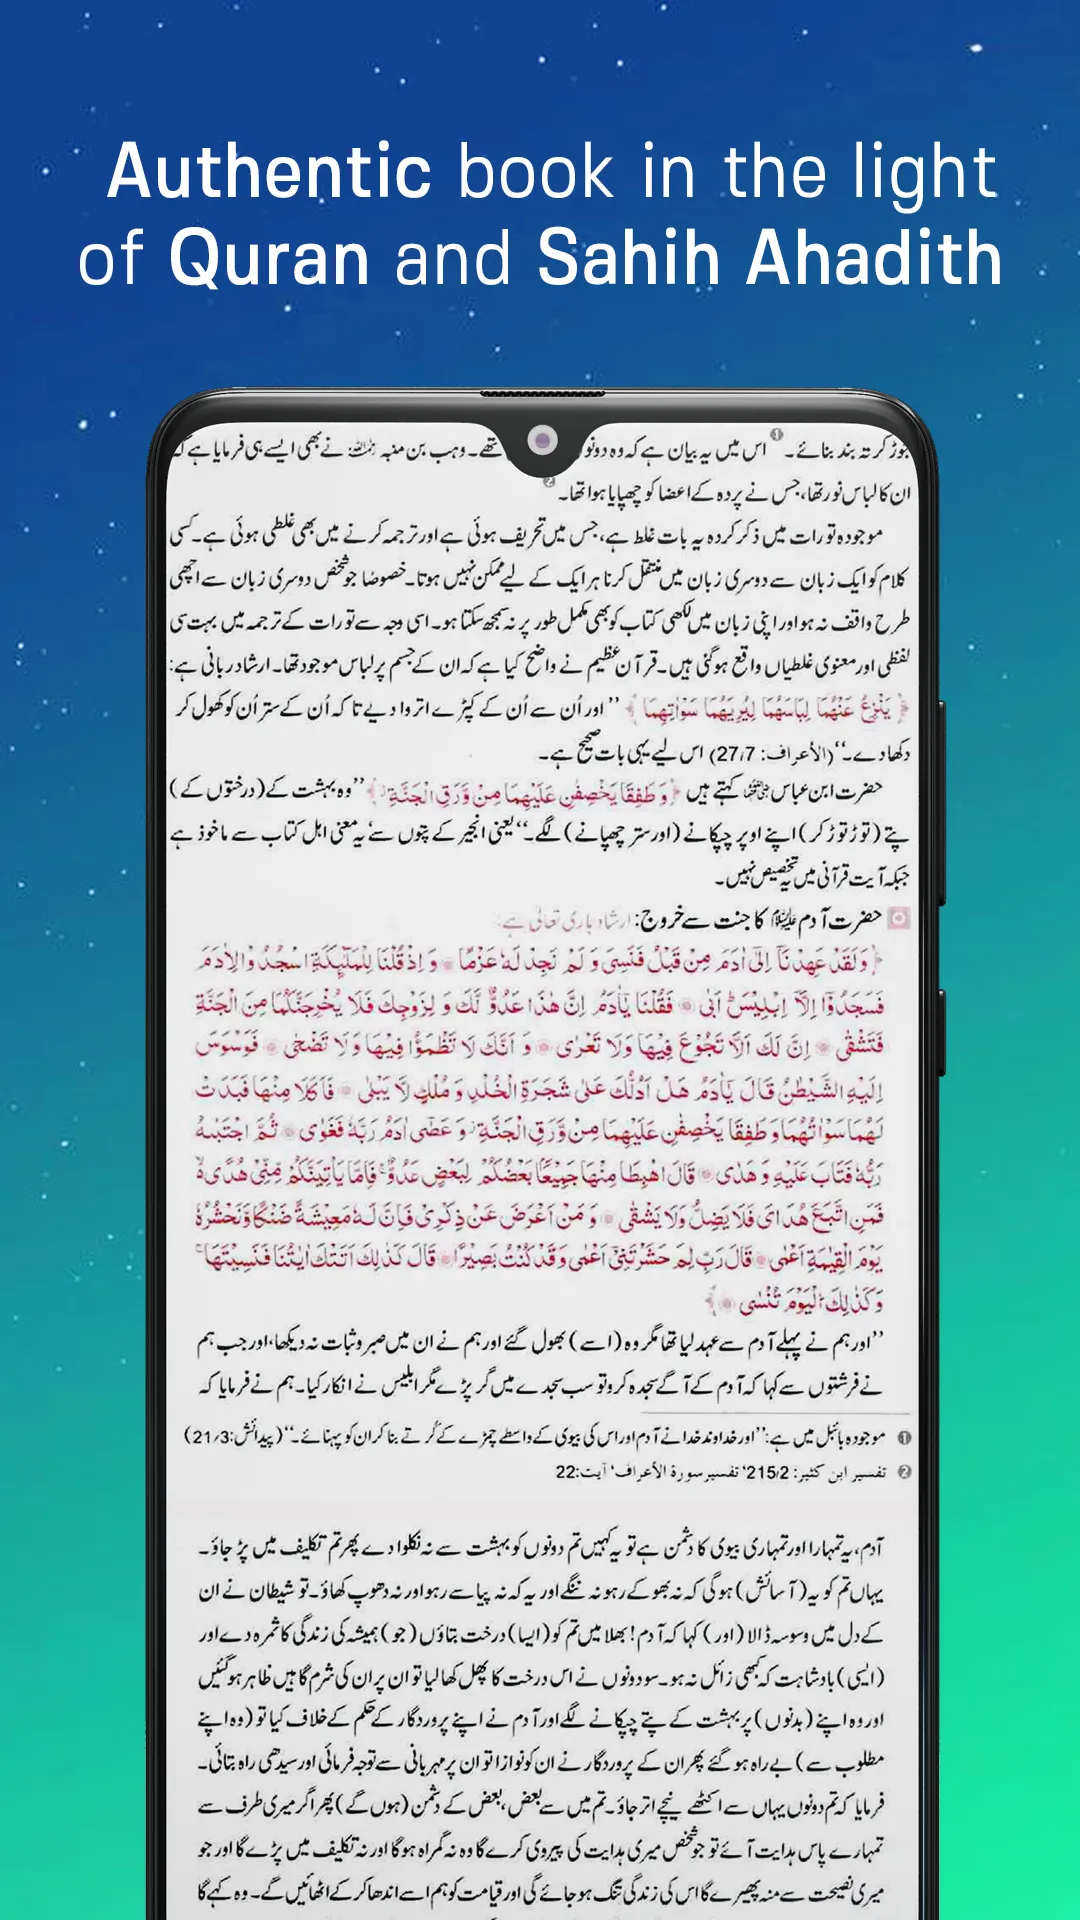 Authentic book in the light
of Quran and Sahih Ahadith
جوڑ کر تہ بند بنائے۔ ❶ اس میں یہ بیان ہے کہ وہ دونوں تھے۔ وہب بن منبہ رحمہ اللہ نے بھی ایسے ہی فرمایا ہے کہ
ان کا لباس نور تھا، جس نے پردہ کے اعضا کو چھپایا ہوا تھا۔ ❷
موجودہ تورات میں ذکر کردہ یہ بات غلط ہے، جس میں تحریف ہوئی ہے اور ترجمہ کرنے میں بھی غلطی ہوئی ہے۔ کسی
کلام کو ایک زبان سے دوسری زبان میں منتقل کرنا ہر ایک کے لیے ممکن نہیں ہوتا۔ خصوصًا جو شخص دوسری زبان سے اچھی
طرح واقف نہ ہو اور اپنی زبان میں لکھی کتاب کو بھی مکمل طور پر نہ سمجھ سکتا ہو۔ اسی وجہ سے تورات کے ترجمہ میں بہت سی
لفظی اور معنوی غلطیاں واقع ہو گئی ہیں۔ قرآن عظیم نے واضح کیا ہے کہ ان کے جسم پر لباس موجود تھا۔ ارشاد ربانی ہے:
﴿ يَنْزِعُ عَنْهُمَا لِبَاسَهُمَا لِيُرِيَهُمَا سَوْاٰتِهِمَا ﴾ ’’اور اُن سے اُن کے کپڑے اتروا دیے تا کہ اُن کے ستر اُن کو کھول کر
دکھا دے۔‘‘ (الأعراف: 27/7) اس لیے یہی بات صحیح ہے۔
حضرت ابن عباس رضی اللہ عنہما کہتے ہیں ﴿ وَ طَفِقَا يَخْصِفٰنِ عَلَيْهِمَا مِنْ وَّرَقِ الْجَنَّةِ ﴾ ’’وہ بہشت کے (درختوں کے)
پتے (توڑ توڑ کر) اپنے اوپر چپکانے (اور ستر چھپانے) لگے۔‘‘ یعنی انجیر کے پتوں سے‘ یہ معنی اہل کتاب سے ماخوذ ہے
جبکہ آیت قرآنی میں یہ تخصیص نہیں۔
حضرت آدم علیہ السلام کا جنت سے خروج: ارشاد باری تعالیٰ ہے:
﴿ وَ لَقَدْ عَهِدْنَاۤ اِلٰۤى اٰدَمَ مِنْ قَبْلُ فَنَسِىَ وَ لَمْ نَجِدْ لَهٗ عَزْمًا ۞ وَ اِذْ قُلْنَا لِلْمَلٰٓئِكَةِ اسْجُدُوْا لِاٰدَمَ
فَسَجَدُوْۤا اِلَّاۤ اِبْلِيْسَ ؕ اَبٰى ۞ فَقُلْنَا يٰۤاٰدَمُ اِنَّ هٰذَا عَدُوٌّ لَّكَ وَ لِزَوْجِكَ فَلَا يُخْرِجَنَّكُمَا مِنَ الْجَنَّةِ
فَتَشْقٰى ۞ اِنَّ لَكَ اَلَّا تَجُوْعَ فِيْهَا وَلَا تَعْرٰى ۞ وَ اَنَّكَ لَا تَظْمَؤُا فِيْهَا وَ لَا تَضْحٰى ۞ فَوَسْوَسَ
اِلَيْهِ الشَّيْطٰنُ قَالَ يٰۤاٰدَمُ هَلْ اَدُلُّكَ عَلٰى شَجَرَةِ الْخُلْدِ وَ مُلْكٍ لَّا يَبْلٰى ۞ فَاَكَلَا مِنْهَا فَبَدَتْ
لَهُمَا سَوْاٰتُهُمَا وَ طَفِقَا يَخْصِفٰنِ عَلَيْهِمَا مِنْ وَّرَقِ الْجَنَّةِ ؗ وَ عَصٰۤى اٰدَمُ رَبَّهٗ فَغَوٰى ۞ ثُمَّ اجْتَبٰهُ
رَبُّهٗ فَتَابَ عَلَيْهِ وَ هَدٰى ۞ قَالَ اهْبِطَا مِنْهَا جَمِيْعًۢا بَعْضُكُمْ لِبَعْضٍ عَدُوٌّ ۚ فَاِمَّا يَاْتِيَنَّكُمْ مِّنِّىْ هُدًى ۙ
فَمَنِ اتَّبَعَ هُدَاىَ فَلَا يَضِلُّ وَلَا يَشْقٰى ۞ وَ مَنْ اَعْرَضَ عَنْ ذِكْرِىْ فَاِنَّ لَهٗ مَعِيْشَةً ضَنْكًا وَّ نَحْشُرُهٗ
يَوْمَ الْقِيٰمَةِ اَعْمٰى ۞ قَالَ رَبِّ لِمَ حَشَرْتَنِىْۤ اَعْمٰى وَ قَدْ كُنْتُ بَصِيْرًا ۞ قَالَ كَذٰلِكَ اَتَتْكَ اٰيٰتُنَا فَنَسِيْتَهَا ۚ
وَ كَذٰلِكَ الْيَوْمَ تُنْسٰى ۞ ﴾
’’اور ہم نے پہلے آدم سے عہد لیا تھا مگر وہ (اسے) بھول گئے اور ہم نے ان میں صبر و ثبات نہ دیکھا، اور جب ہم
نے فرشتوں سے کہا کہ آدم کے آگے سجدہ کرو تو سب سجدے میں گر پڑے مگر ابلیس نے انکار کیا۔ ہم نے فرمایا کہ
❶ موجودہ بائبل میں ہے: ’’اور خداوند خدا نے آدم اور اس کی بیوی کے واسطے چمڑے کے کُرتے بنا کر ان کو پہنائے۔‘‘ (پیدائش: 21/3)
❷ تفسير ابن كثير: 215/2‘ تفسير سورة الأعراف‘ آيت: 22
آدم، یہ تمہارا اور تمہاری بیوی کا دشمن ہے تو یہ کہیں تم دونوں کو بہشت سے نہ نکلوا دے پھر تم تکلیف میں پڑ جاؤ۔
یہاں تم کو یہ (آسائش) ہو گی کہ نہ بھوکے رہو نہ ننگے اور یہ کہ نہ پیاسے رہو اور نہ دھوپ کھاؤ۔ تو شیطان نے ان
کے دل میں وسوسہ ڈالا (اور) کہا کہ آدم! بھلا میں تم کو (ایسا) درخت بتاؤں (جو) ہمیشہ کی زندگی کا ثمرہ دے اور
(ایسی) بادشاہت کہ کبھی زائل نہ ہو۔ سو دونوں نے اس درخت کا پھل کھا لیا تو ان پر ان کی شرم گاہیں ظاہر ہو گئیں
اور وہ اپنے (بدنوں) پر بہشت کے پتے چپکانے لگے اور آدم نے اپنے پروردگار کے حکم کے خلاف کیا تو (وہ اپنے
مطلوب سے) بے راہ ہو گئے پھر ان کے پروردگار نے ان کو نوازا تو ان پر مہربانی سے توجہ فرمائی اور سیدھی راہ بتائی۔
فرمایا کہ تم دونوں یہاں سے اکٹھے نیچے اتر جاؤ۔ تم میں سے بعض، بعض کے دشمن (ہوں گے) پھر اگر میری طرف سے
تمہارے پاس ہدایت آئے تو جو شخص میری ہدایت کی پیروی کرے گا وہ نہ گمراہ ہو گا اور نہ تکلیف میں پڑے گا اور جو
میری نصیحت سے منہ پھیرے گا اس کی زندگی تنگ ہو جائے گی اور قیامت کو ہم اسے اندھا کر کے اٹھائیں گے۔ وہ کہے گا